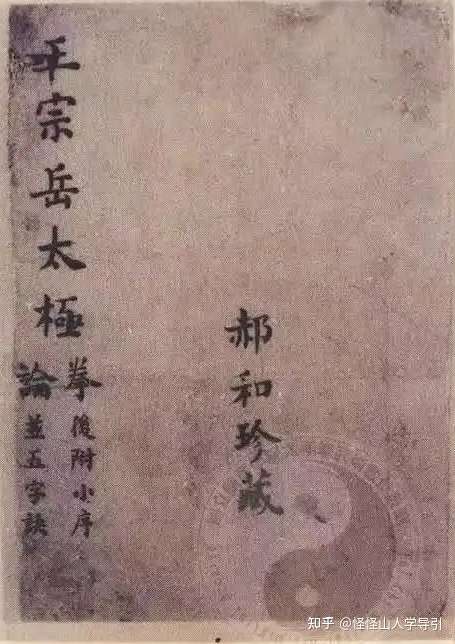 郝和珍藏
王宗岳太極
拳後附小序
論並五字訣
知乎 @怪怪山人学导引